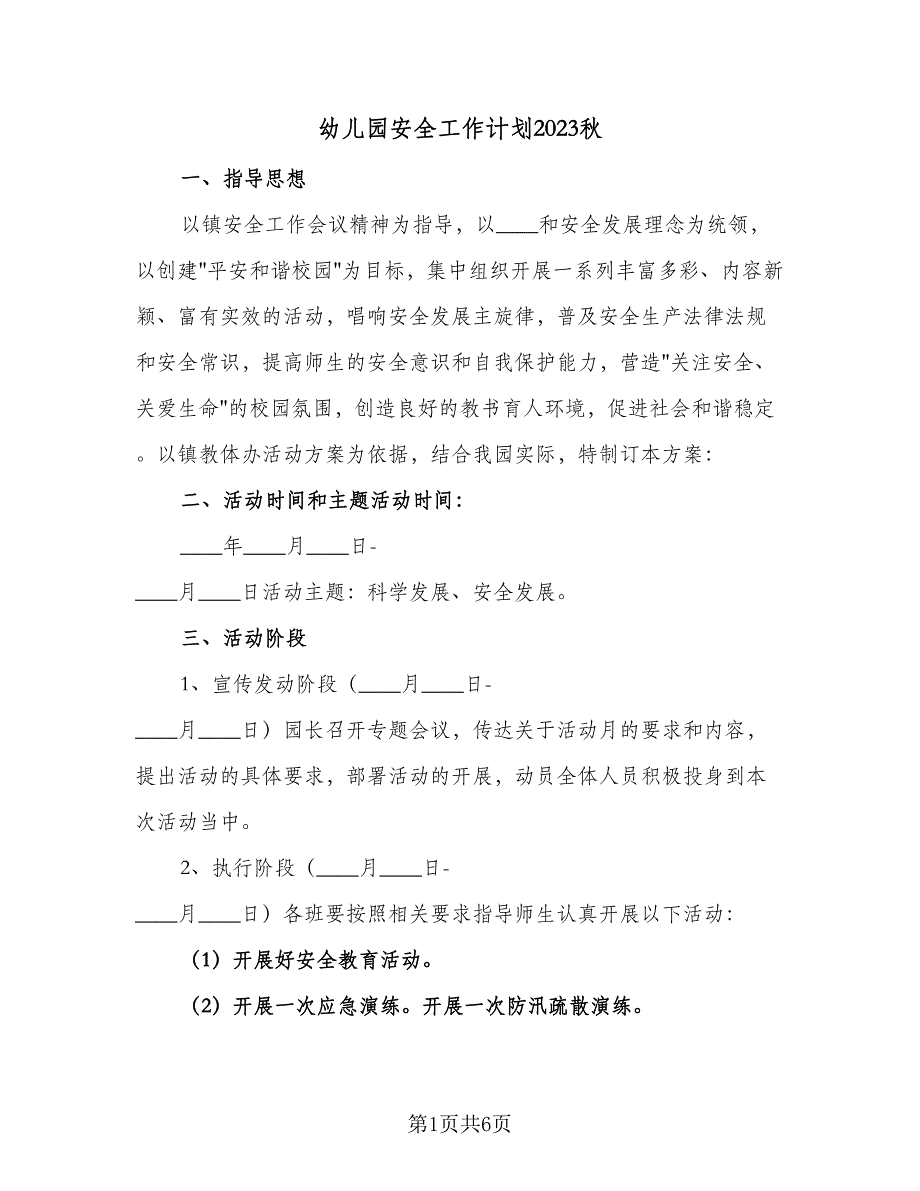 幼儿园安全工作计划2023秋
一、指导思想
以镇安全工作会议精神为指导，以____和安全发展理念为统领，
以创建"平安和谐校园"为目标，集中组织开展一系列丰富多彩、内容新
颖、富有实效的活动，唱响安全发展主旋律，普及安全生产法律法规
和安全常识，提高师生的安全意识和自我保护能力，营造"关注安全、
关爱生命"的校园氛围，创造良好的教书育人环境，促进社会和谐稳定
。以镇教体办活动方案为依据，结合我园实际，特制订本方案：
二、活动时间和主题活动时间：
____年____月____日-
____月____日活动主题：科学发展、安全发展。
三、活动阶段
1、宣传发动阶段（____月____日-
____月____日）园长召开专题会议，传达关于活动月的要求和内容，
提出活动的具体要求，部署活动的开展，动员全体人员积极投身到本
次活动当中。
2、执行阶段（____月____日-
____月____日）各班要按照相关要求指导师生认真开展以下活动：
（1）开展好安全教育活动。
（2）开展一次应急演练。开展一次防汛疏散演练。
第1页共6页